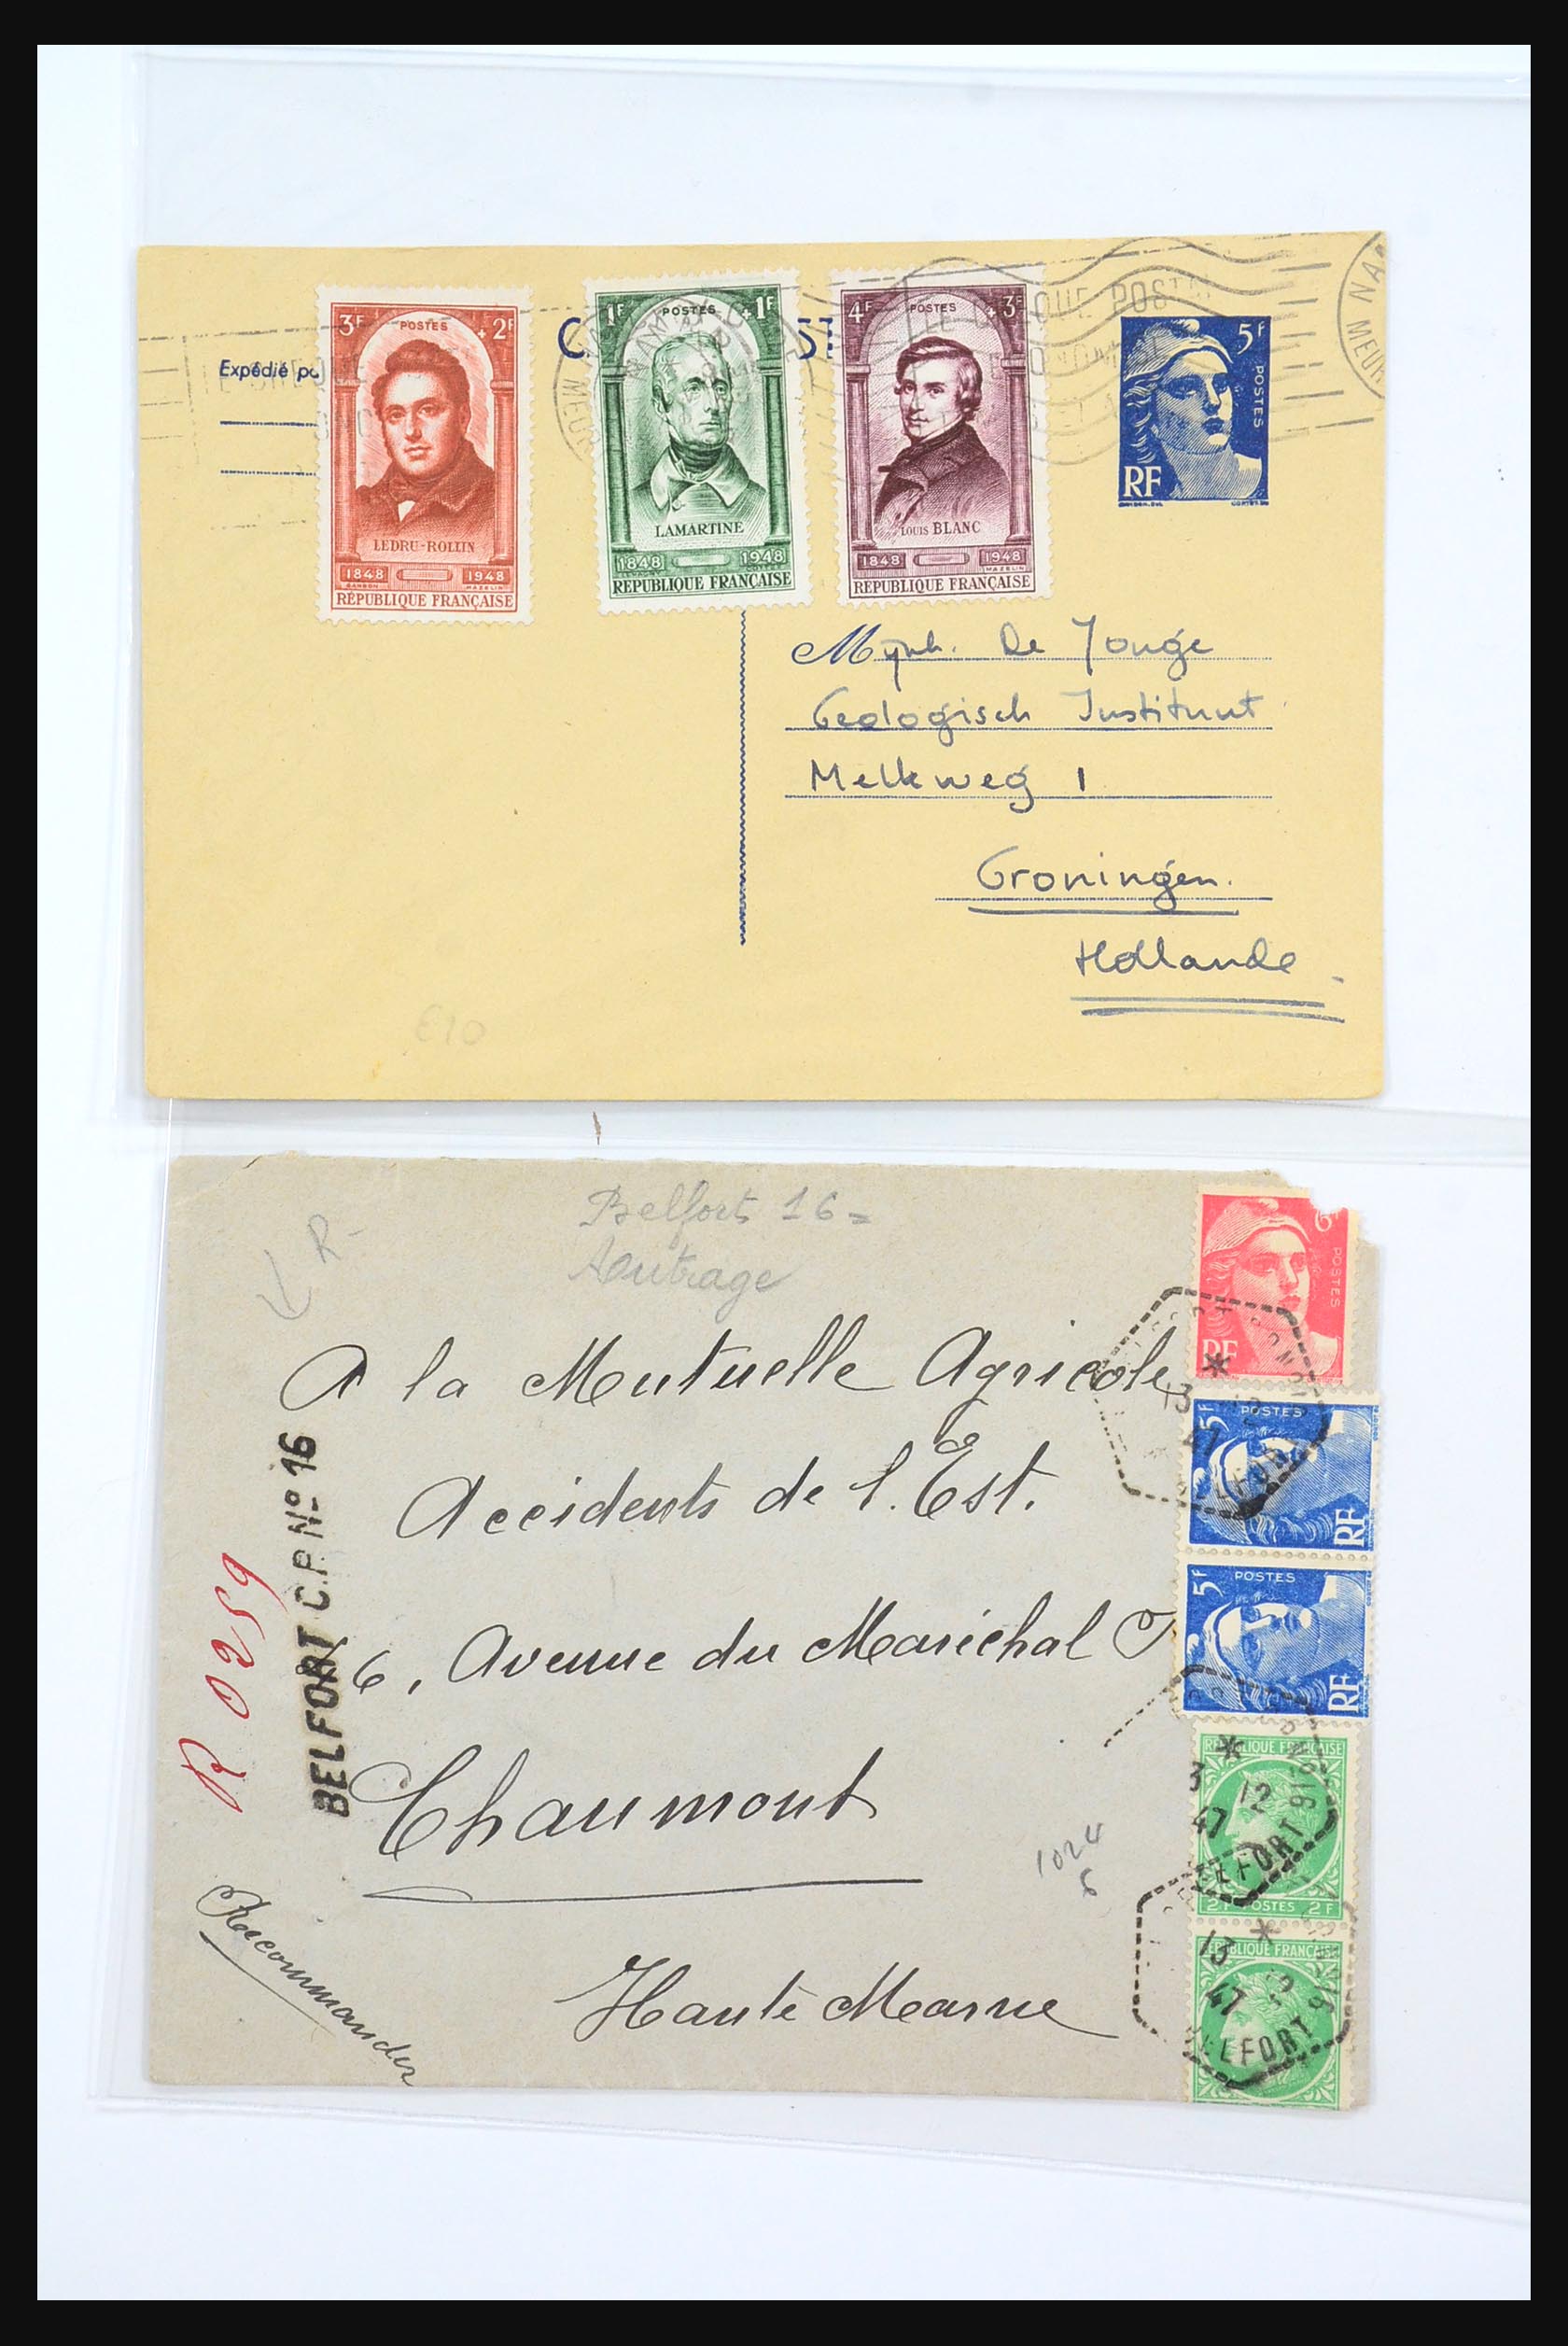 3F POSTES +2F
LEDRU-ROLLIN
1848 1948
RÉPUBLIQUE FRANÇAISE
1F POSTES +1F
LAMARTINE
1848 1948
RÉPUBLIQUE FRANÇAISE
4F POSTES +3F
LOUIS BLANC
1848 1948
MAZELIN
RÉPUBLIQUE FRANÇAISE
5F
POSTES
RF
Expédié
Mynh. De Jonge
Geologisch Instituut
Melkweg 1
Groningen.
Hollande
€10
Belfort 16
Autrage
R
A la Mutuelle Agricole
Accidents de l'Est.
6, Avenue du Maréchal
Chaumont
Haute Marne
Recommander
R 0259
BELFORT C.P. Nº 16
1024
6
6F
POSTES
RF
5F
POSTES
RF
5F
POSTES
RF
RÉPUBLIQUE FRANÇAISE
2F POSTES 2F
RÉPUBLIQUE FRANÇAISE
13
12
47
BELFORT
3
12
47
BELFORT
13
47
BELFORT